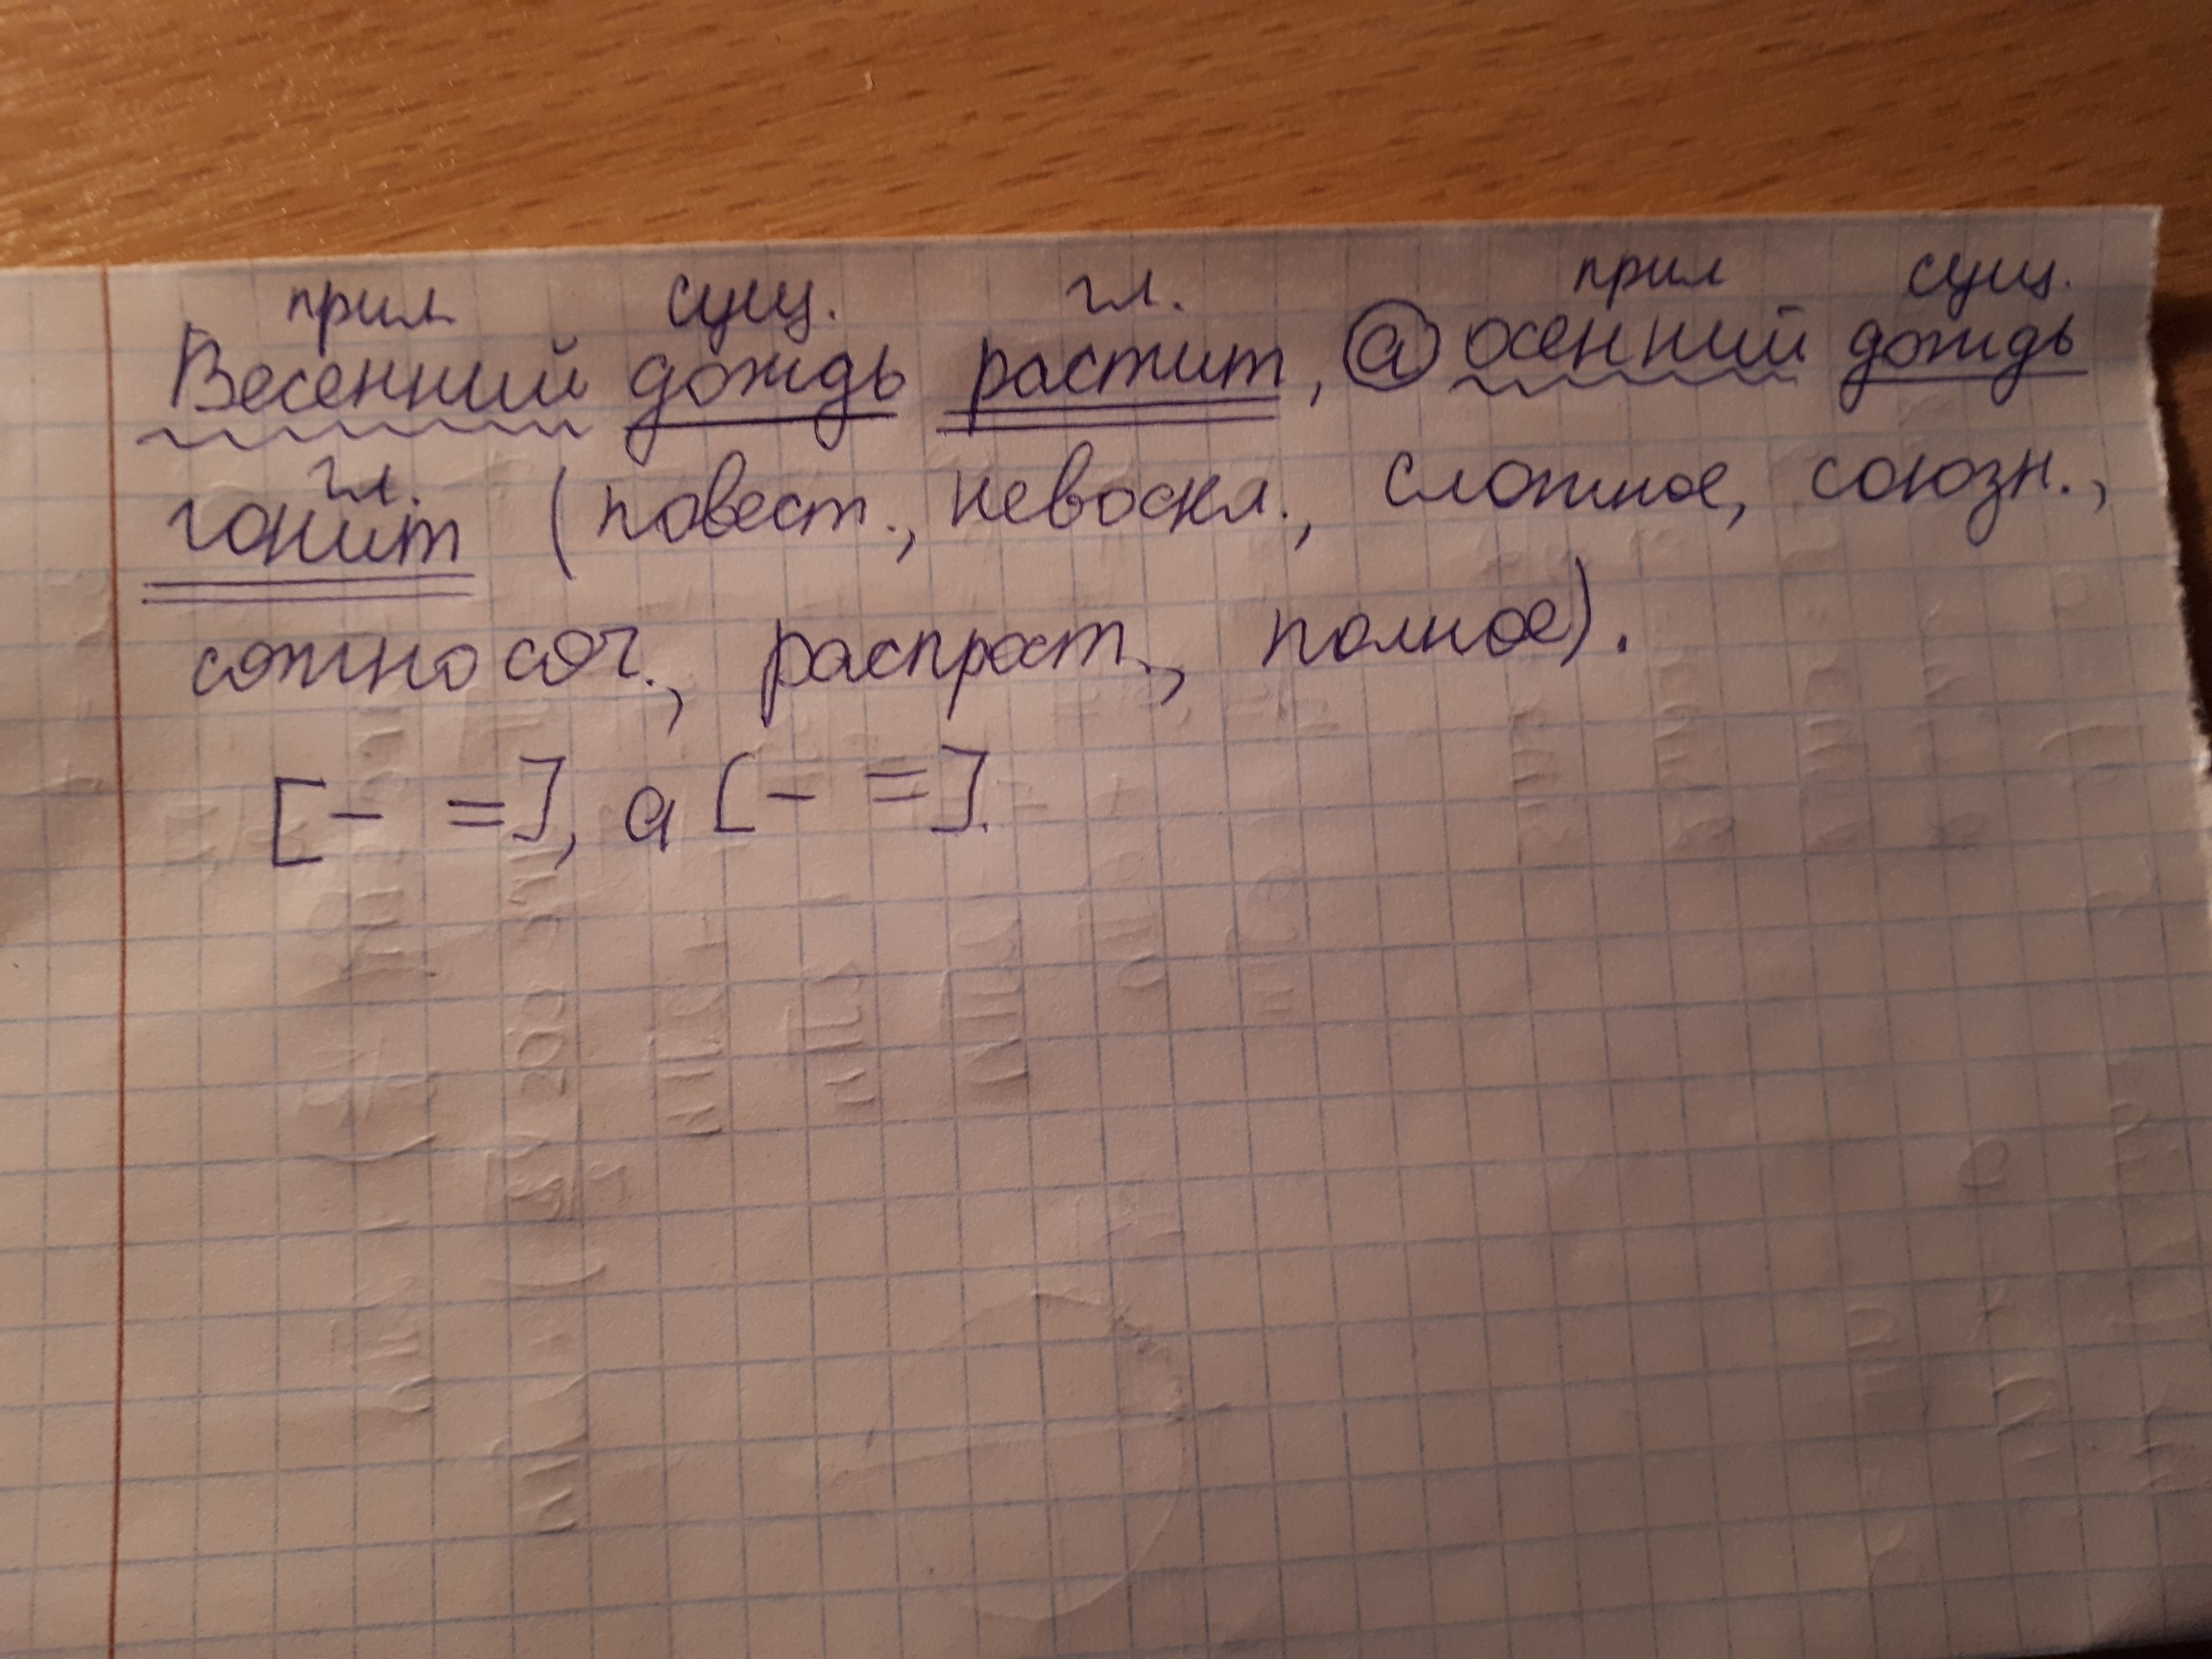 прил сущ. гл. прил сущ.
Весенний дождь растит, а осенний дождь
гл.
гонит (повест., невоскл., сложное, союзн.,
сложносоч., распрост., полное).
[− =], а [− =].